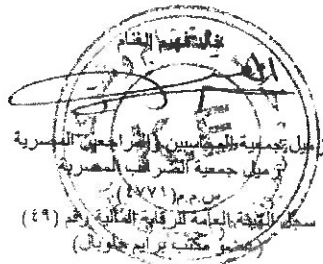 خالد فهيم الغنام
زميل جمعية المحاسبين والمراجعين المصرية
زميل جمعية الضرائب المصرية
س.م.م (٤٧٧١)
سجل الهيئة العامة للرقابة المالية رقم (٤٩)
(عضو مكتب برايم جلوبال)